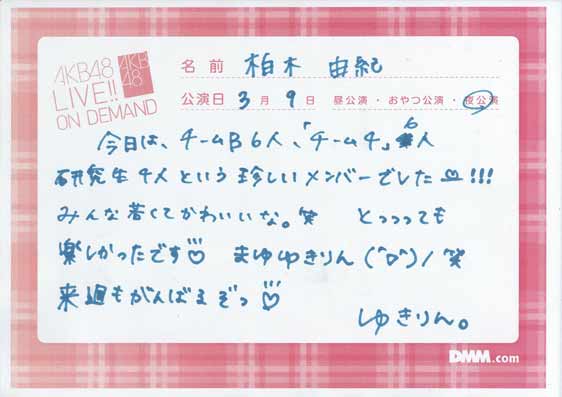 AKB48
LIVE!!
ON DEMAND
AKB
48
名前 柏木 由紀
公演日 3月 9日 昼公演・おやつ公演・夜公演
今日は、チームB6人、「チーム4」6人
研究生4人という珍しいメンバーでした!!!
みんな若くてかわいいな。笑 とっっっても
楽しかったです♡ まゆゆきりん(^O^)/ 笑
来週もがんばるぞっ♡
ゆきりん。
DMM.com